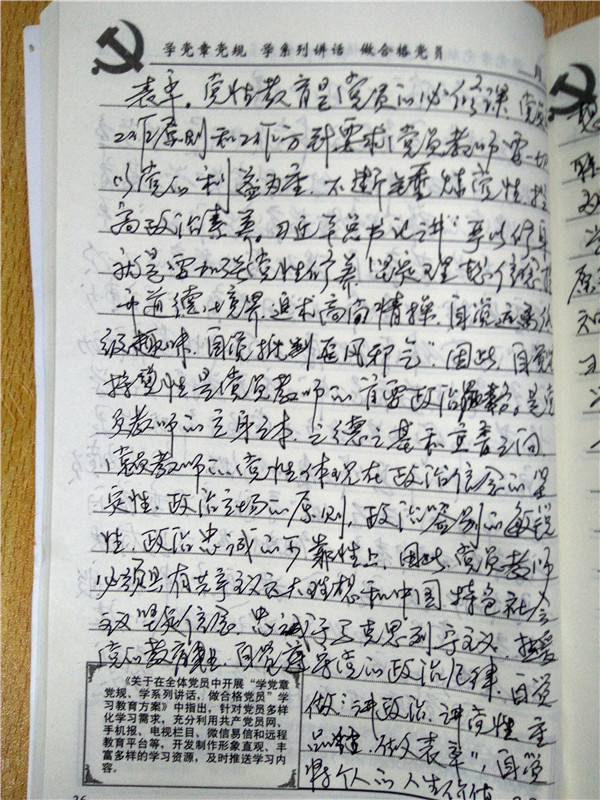 学党章党规 学系列讲话 做合格党员
表率。党性教育是党员的必修课，党员
工作原则和工作方针要求党员教师要一切
以党的利益为重，不断锤炼党性，提
高政治素养。习近平总书记讲"严以修身
就是要加强党性修养，坚定理想信念，提
升道德境界，追求高尚情操，自觉远离低
级趣味，自觉抵制歪风邪气"。因此，自觉
持党性是党员教师的首要政治。是党
员教师的立身之本，立德之基和
党员教师的党性体现在政治信念的坚
定性，政治立场的原则，政治鉴别的敏锐
性，政治忠诚的可靠性上。因此，党员教师
必须具有共产主义远大理想和中国特色社会
主义坚定信念，忠诚于马克思列宁主义，热爱
党的教育事业，自觉遵守党的政治纪律，自觉
做"讲政治，讲党性，重
品德，做表率"，自觉
将个人的人生价值
《关于在全体党员中开展"学党章
党规、学系列讲话，做合格党员"学
习教育方案》中指出，针对党员多样
化学习需求，充分利用共产党员网、
手机报、电视栏目、微信易信和远程
教育平台等，开发制作形象直观、丰
富多样的学习资源，及时推送学习内
容。